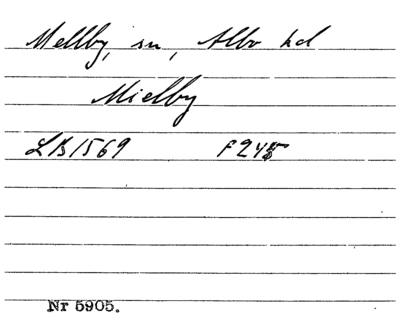 Mellby, sn, Albo hd
Mielby
LB 1569 F 245
Nr 5905.